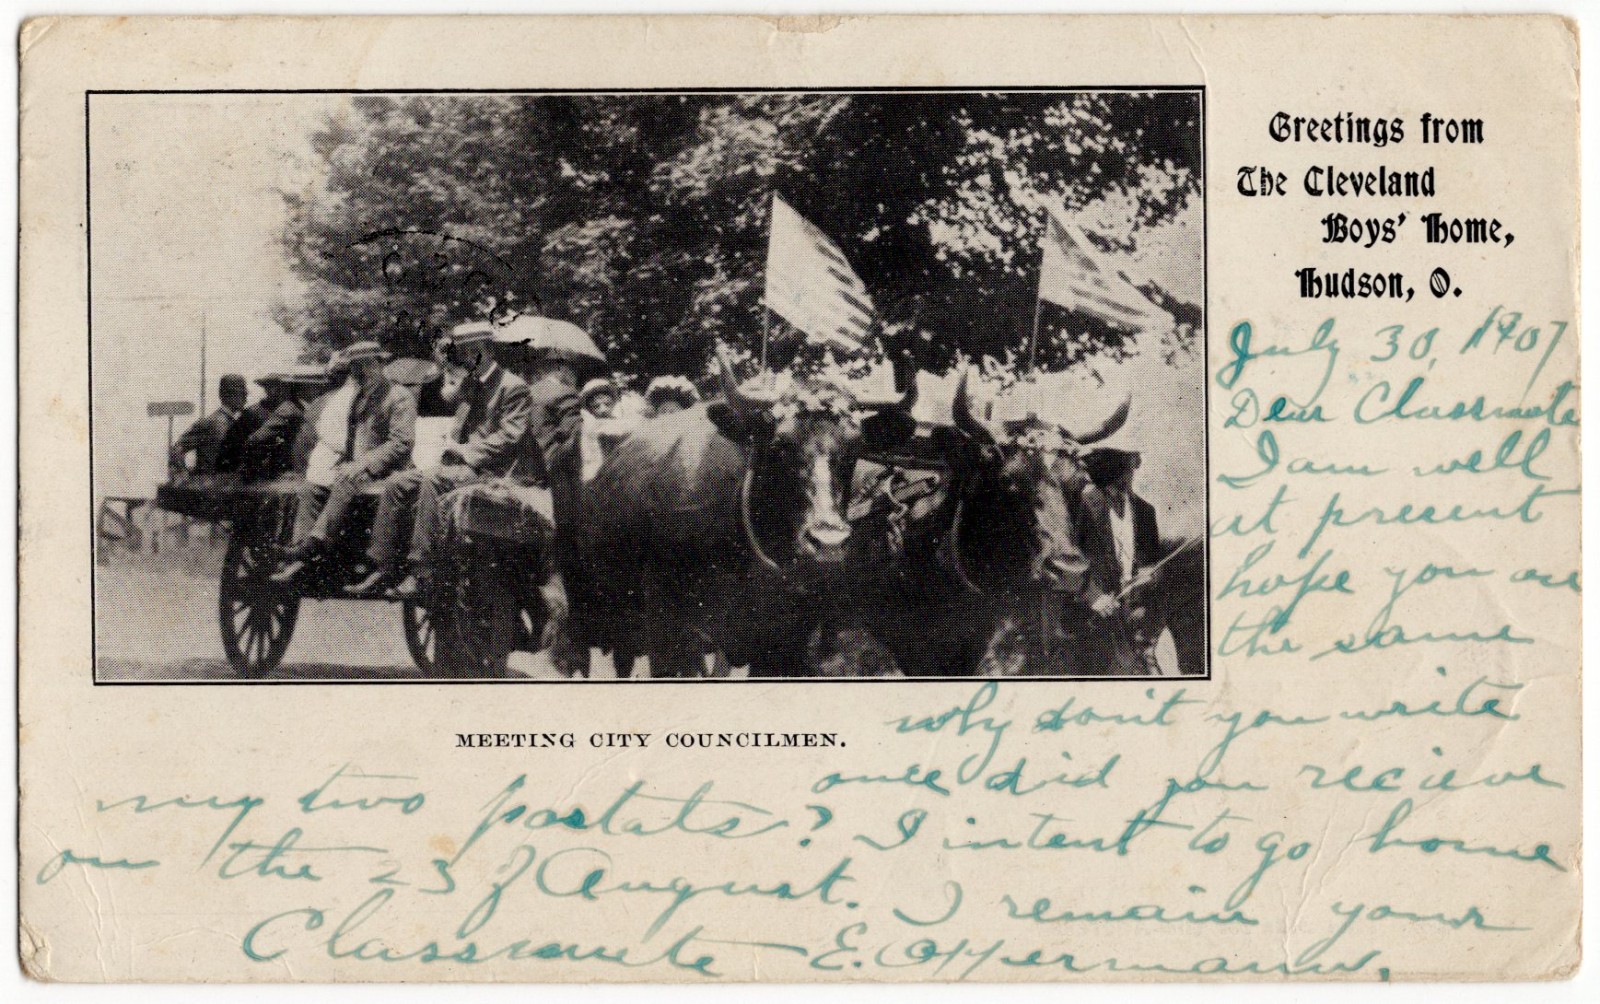 Greetings from
The Cleveland
Boys' Home,
Hudson, O.
July 30, 1907
Dear Classmate
I am well
at present
hope you are
the same
MEETING CITY COUNCILMEN.
why don't you write
once did you recieve
my two postats? I intent to go home
on the 23 of August. I remain your
Classmate E. Oppermann.